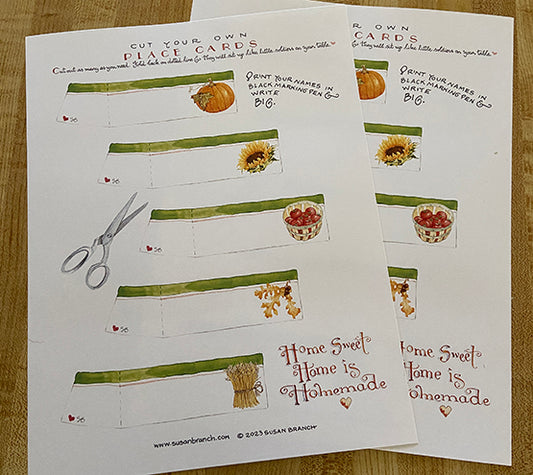 CUT YOUR OWN
PLACE CARDS
Cut out as many as you need. Fold back on dotted lines & they will sit up like little soldiers on your table.
PRINT YOUR NAMES IN
BLACK MARKING PEN &
WRITE
BIG.
SB
SB
SB
SB
SB
Home Sweet
Home is
Homemade
www.susanbranch.com © 2023 SUSAN BRANCH
OWN
CARDS
they will sit up like little soldiers on your table.
PRINT YOUR NAMES IN
BLACK MARKING PEN &
WRITE
BIG.
Home Sweet
Home is
Homemade